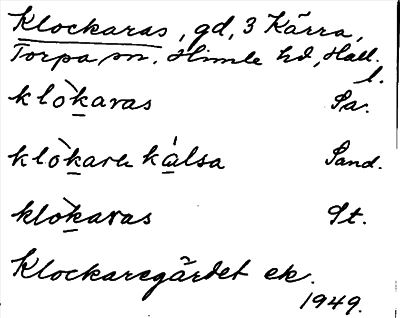 Klockaras, gd, 3 Kärra,
Torpa sn. Himle hd, Hall.
l.
klòkaras Sa.
klòkare kálsa Sand.
klòkaras St.
Klockaregärdet ek.
1949.